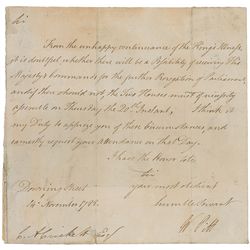 Sir
From the unhappy continuance of the King's Illness,
it is doubtful whether there will be a Possibility of receiving His
Majesty's Commands for the further Prorogation of Parliament
and if there should not the Two Houses must of necessity
assemble on Thursday the 20th Instant, I think it
my Duty to apprize you of these Circumstances, and
earnestly request your attendance on that Day.
I have the Honor to be
Sir
your most obedient
humble Servant
W: Pitt
Downing Street
14th November 1788.
Esqr